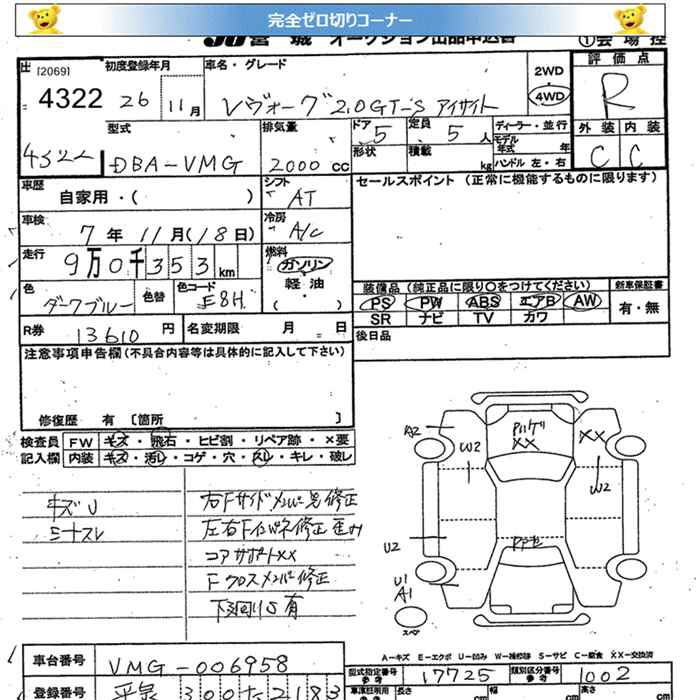 完全ゼロ切りコーナー
JU宮城 オークション出品申込書 ①会場控
出 [2069] 初度登録年月 車名・グレード 2WD 評価点
4322 26 11月 レヴォーグ 2.0GT-S アイサイト 4WD R
型式 排気量 ドア 5 定員 5人 ディーラー・並行 外装 内装
4322 DBA-VMG 2000cc 形状 積載 kg モデル年式 年 C C
ハンドル 左・右
車歴 シフト セールスポイント (正常に機能するものに限ります)
自家用・( ) AT
車検 冷房
7年 11月(18日) A/C
走行 燃料
9万0千353km ガソリン
軽油
( )
装備品 (純正品に限り○をつけてください) 新車保証書
色 色替 色コード PS PW ABS エアB AW 有・無
ダークブルー E8H SR ナビ TV カワ
R券 13610円 名変期限 月 日 後日品
注意事項申告欄 (不具合内容等は具体的に記入して下さい)
修復歴 有 〔箇所 〕
検査員 FW キズ・飛石・ヒビ割・リペア跡・×要
記入欄 内装 キズ・汚レ・コゲ・穴・スレ・キレ・破レ
キズU 右Fサイドメンバー先修正
ミナスレ 左右Fインパネ修正歪み
コアサポートXX
Fクロスメンバー修正
下回りS有
A2 W2 XX XX W2
U2
U1
A1
スペア
A-キズ E-エクボ U-凹み W-補修跡 S-サビ C-腐食 XX-交換済
車台番号 VMG-006958 型式指定番号 17725 類別区分番号 1002
登録番号 300 2183 車庫証明用参考 長さ cm 幅 cm 高さ cm